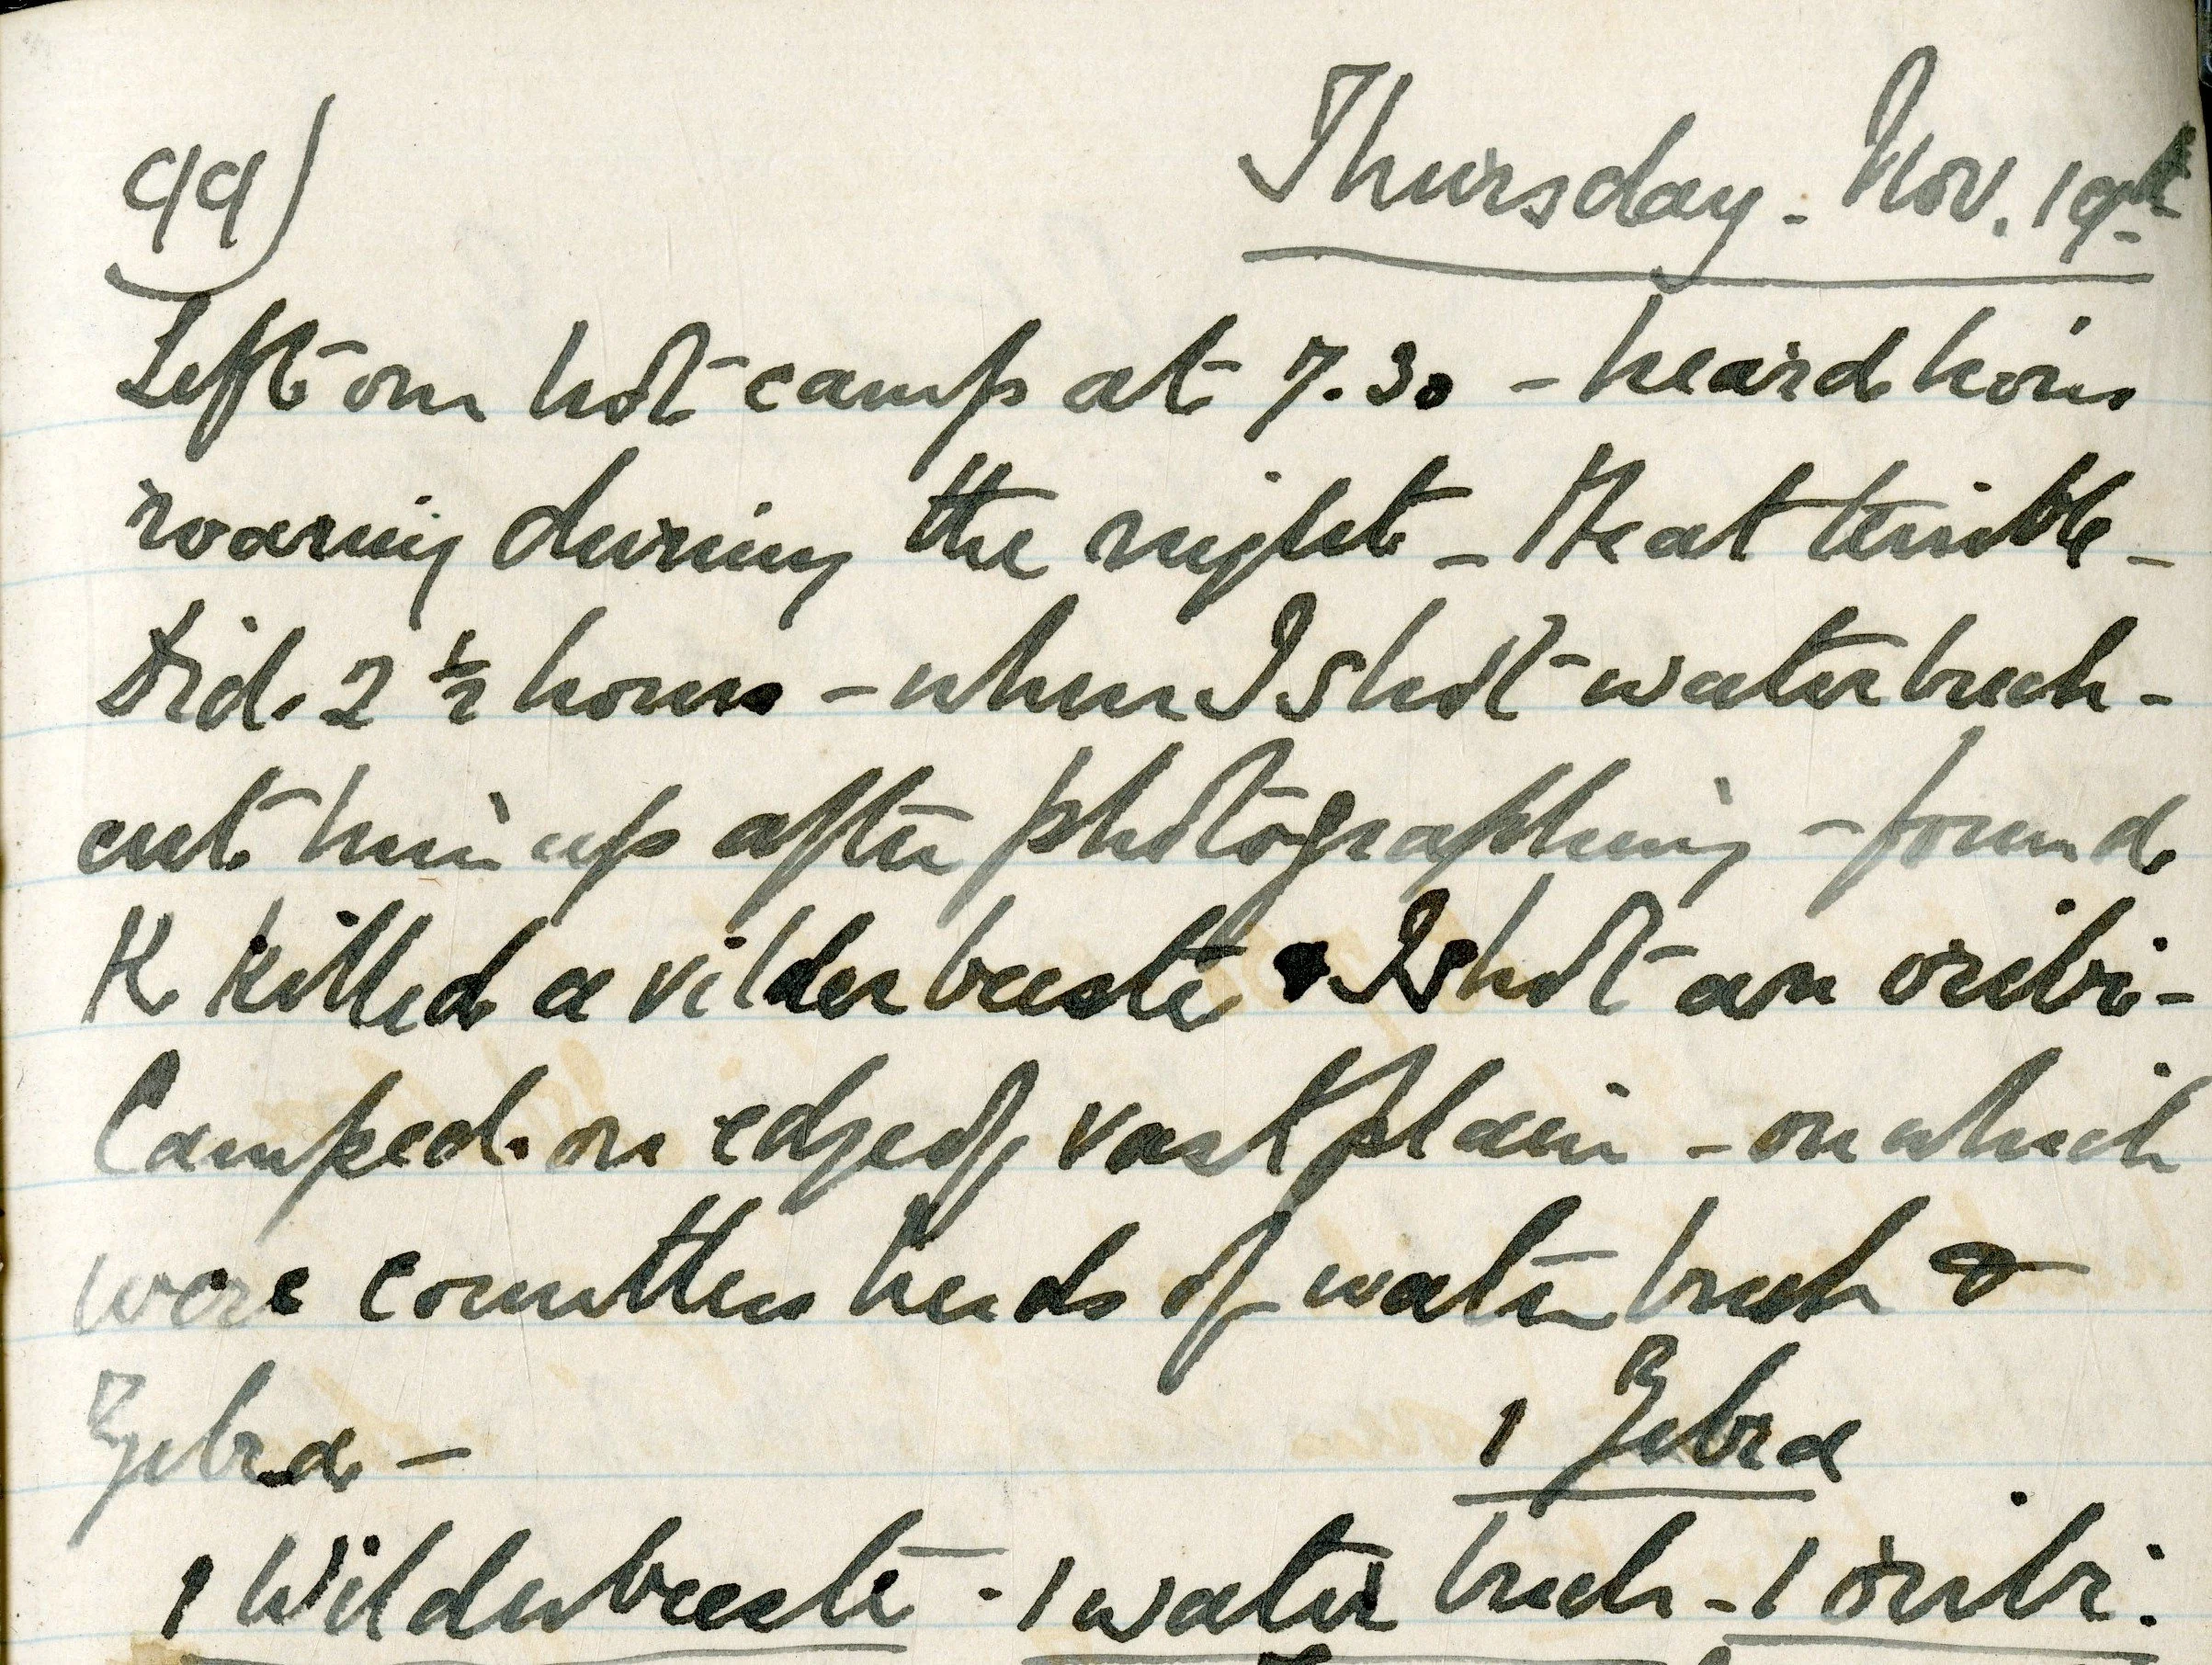 99) Thursday - Nov. 19th
Left our hot camp at 7.30 - heard lions
roaring during the night - Heat terrible -
Did 2 ½ hours - when I shot waterbuck -
cut him up after photographing - found
K killed a vilder beeste I shot an oribi -
Camped on edge of vast plain - on which
were countless herds of water buck &
Zebra -
1 Zebra
1 Wilderbeeste - 1 water buck - 1 oribi.